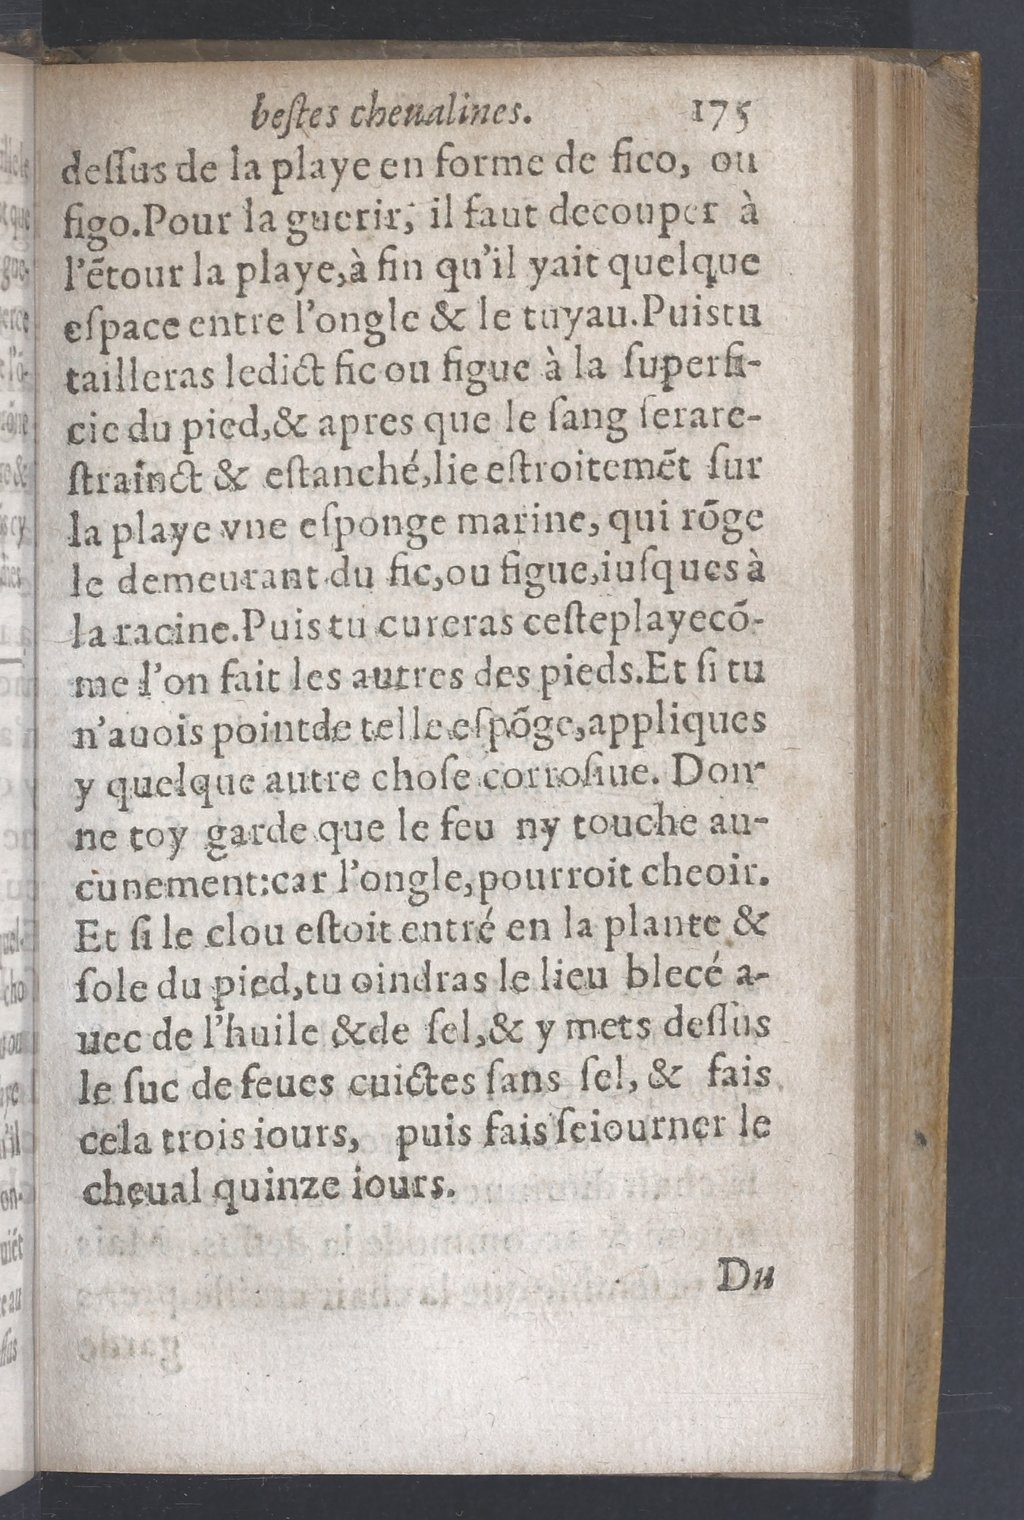 beſtes cheualines. 175
deſſus de la playe en forme de fico, ou
figo.Pour la guerir, il faut decouper à
l'ẽtour la playe,à fin qu'il yait quelque
eſpace entre l'ongle & le tuyau.Puistu
tailleras ledict fic ou figue à la ſuperfi-
cie du pied,& apres que le ſang ſerare-
ſtrainct & eſtanché,lie eſtroitemẽt ſur
la playe vne eſponge marine, qui rõge
le demeurant du fic,ou figue,iuſques à
la racine.Puis tu cureras ceſteplayecõ-
me l'on fait les autres des pieds.Et ſi tu
n'auois pointde telle eſpõge,appliques
y quelque autre choſe corroſiue. Don-
ne toy garde que le feu ny touche au-
cunement:car l'ongle,pourroit cheoir.
Et ſi le clou eſtoit entré en la plante &
ſole du pied,tu oindras le lieu blecé a-
uec de l'huile &de ſel,& y mets deſſus
le ſuc de feues cuictes ſans ſel, & fais
cela trois iours, puis fais ſeiourner le
cheual quinze iours.
Du